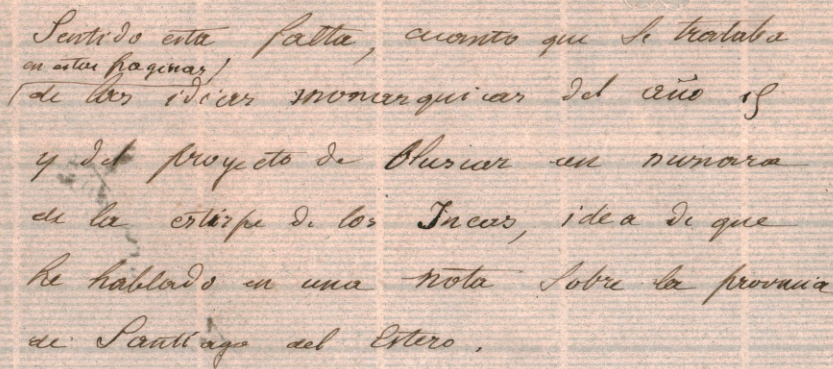 Sentido esta falta, cuanto que se trataba
en estas paginas
de las ideas monarquicas del año 15
y del proyecto de un
de la estirpe de los Incas, idea de que
he hablado en una nota sobre la provincia
de Santiago del Estero.